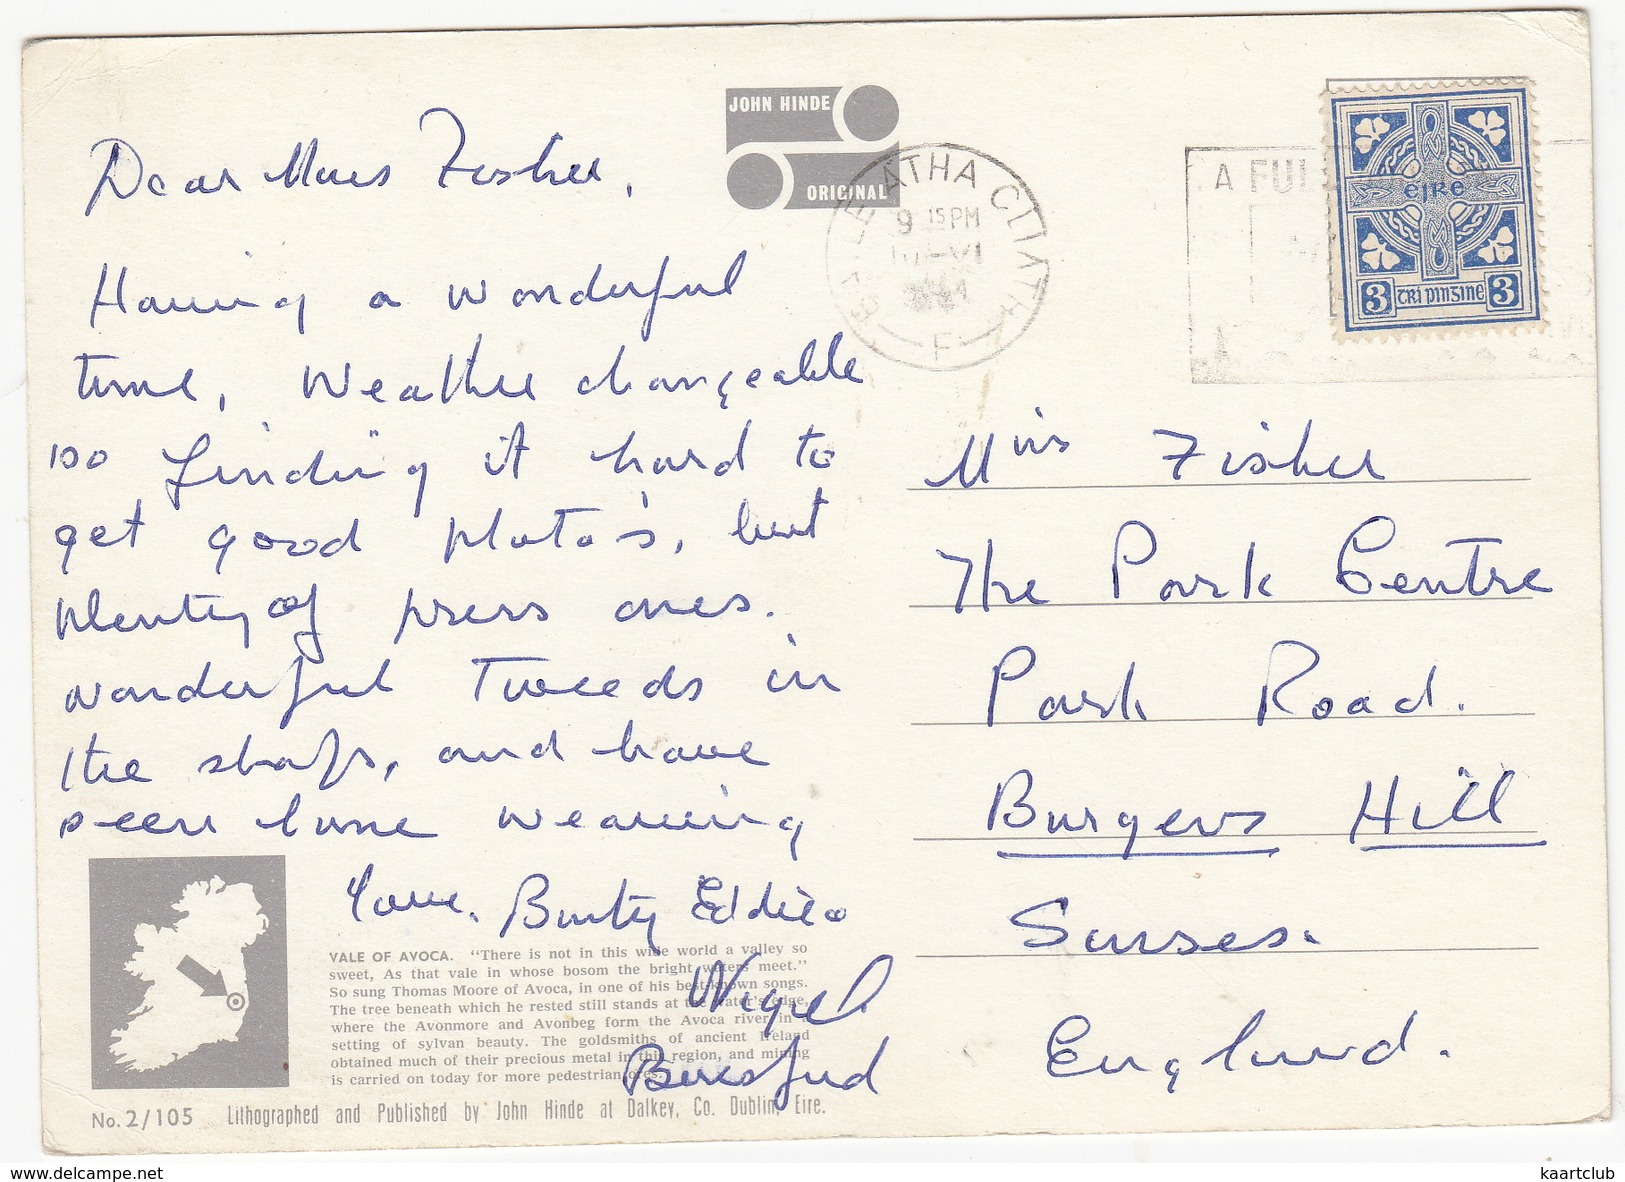 JOHN HINDE
ORIGINAL
Dear Miss Fisher,
Having a wonderful
time, Weather changeable
so finding it hard to
get good photo's, but
plenty of press ones.
wonderful Tweeds in
the shops, and have
seen some weaving
BAILE ÁTHA CLIATH
9 15 PM
VI
F
A FUI
EIRE
3 TRÍ PINGINE 3
Miss Fisher
The Park Centre
Park Road.
Burgess Hill
Sussex.
England.
Betty Eddie
Nigel
Beresford
VALE OF AVOCA. "There is not in this wide world a valley so
sweet, As that vale in whose bosom the bright waters meet."
So sung Thomas Moore of Avoca, in one of his best-known songs.
The tree beneath which he rested still stands at the water's edge,
where the Avonmore and Avonbeg form the Avoca river in a
setting of sylvan beauty. The goldsmiths of ancient Ireland
obtained much of their precious metal in this region, and mining
is carried on today for more pedestrian ores.
No. 2/105 Lithographed and Published by John Hinde at Dalkey, Co. Dublin, Eire.
www.delcampe.net
kaartclub